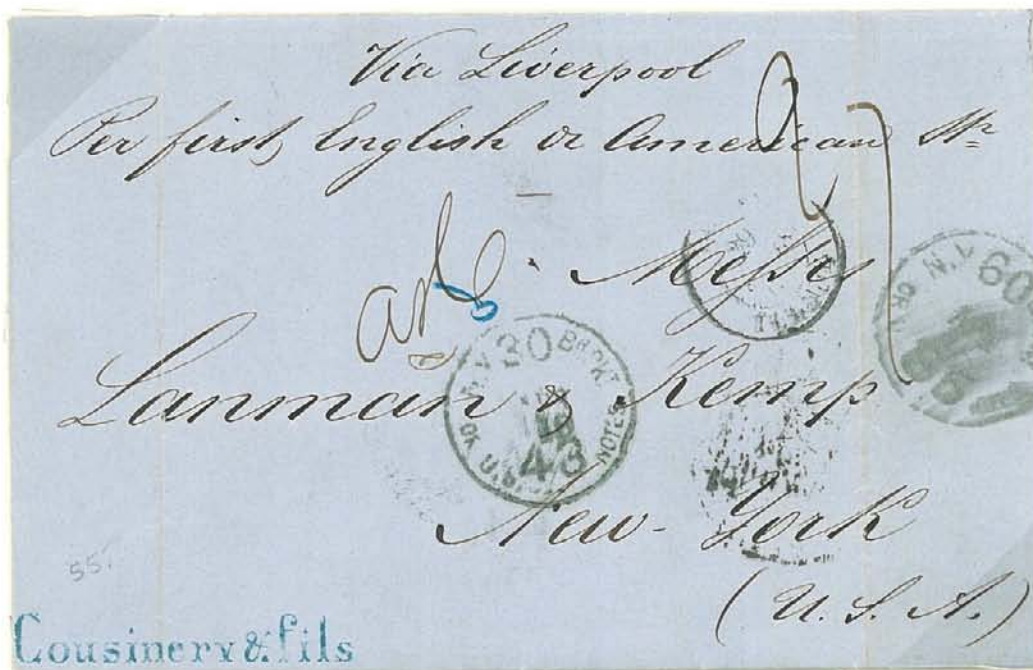 Via Liverpool
Per first English or American Str
Messrs
Lanman & Kemp
New-York
(U. S. A.)
N.Y. 30 BR.PKT.
OR U.S. NOTES
43
N.Y. 60
OR
55.
Cousinery & fils